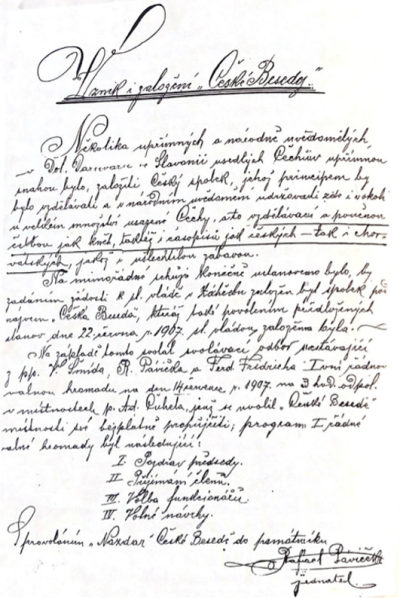 Vznik i založení „České Besedy“.
Několika upřímných a národně uvědomělých
v Dol. Daruvaru ve Slavonii usedlých Čechův upřímnou
snahou bylo, založiti Český spolek, jehož principem by
bylo vzdělávati a v národním uvědomení udržovati zde i v okolí
u velkém množství usazené Čechy, a to vzdělávací a poučnou
četbou jak knih, taktéž i časopisů jak českých – tak i chor-
vatských, jakož i ušlechtilou zábavou.
Na mimořádné schůzi konečně ustanoveno bylo, by
zadáním žádosti k sl. vládě v Záhřebu založen byl spolek pod
názvem „Česká Beseda“, kteráž též povolením předložených
stanov dne 22. června r. 1907. sl. vládou, založena byla.
Na základě tomto svolal svolávací odbor sestávající
z pp. V. Šmída, R. Pavička a Ferd. Fridricha I. valnou
hromadu na den 14. července r. 1907. na 3 hod. odpol.
v místnostech p. Ad. Cukela, jenž se uvolil „České Besedě“
místnosti své bezplatně propůjčiti; program I. řádné
valné hromady byl následující:
I. Pozdrav předsedy.
II. Přijímání členů.
III. Volba funkcionářů.
IV. Volné návrhy.
S provoláním „Nazdar“ České Besedě do památníku
Rafael Pavičk
jednatel.